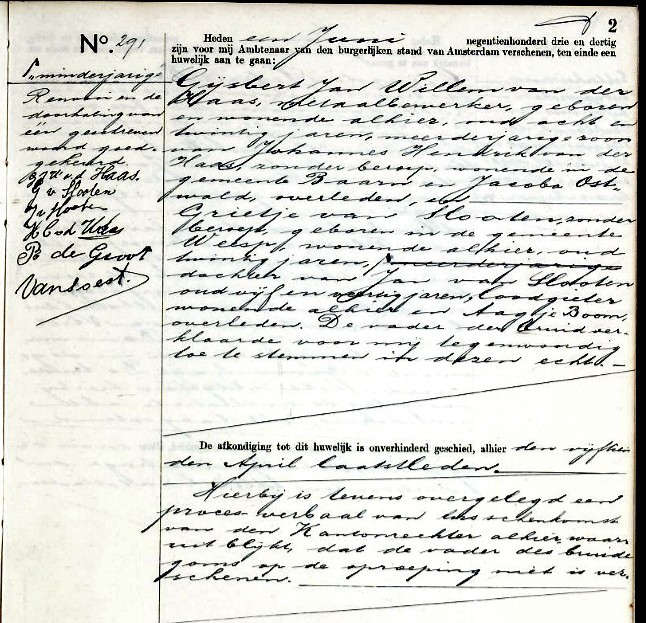 2
No. 291
Heden een Juni negentienhonderd drie en dertig
zijn voor mij Ambtenaar van den burgerlijken stand van Amsterdam verschenen, ten einde een
huwelijk aan te gaan:
Gijsbert Jan Willem van der
Haas, metaalbewerker, geboren
en wonende alhier, oud acht en
twintig jaren, meerderjarige zoon
van Johannes Hendrik van der
Haas, zonder beroep, wonende in de
gemeente Baarn en Jacoba Ost-
wald, overleden, en
Grietje van Slooten, zonder
beroep, geboren in de gemeente
Weesp, wonende alhier, oud
twintig jaren, meerderjarige
dochter van Jan van Slooten
oud vijf en veertig jaren, loodgieter
wonende alhier en Aagje Boom,
overleden. De vader der bruid ver-
klaarde voor mij tegenwoordig
toe te stemmen in dezen echt.
"minderjarige
Renvooi en de
doorhaling van
een geschreven
woord goed-
gekeurd.
v.d. Haas.
G v Slooten
J v Slooten
v d Haas
B de Groot
van Soest.
De afkondiging tot dit huwelijk is onverhinderd geschied, alhier den vijftien
den April laatstleden.
Hierbij is tevens overgelegd een
proces verbaal van bijeenkomst
van den Kantonrechter alhier, waar
uit blijkt, dat de vader des bruide
goms op de oproeping niet is ver-
schenen.